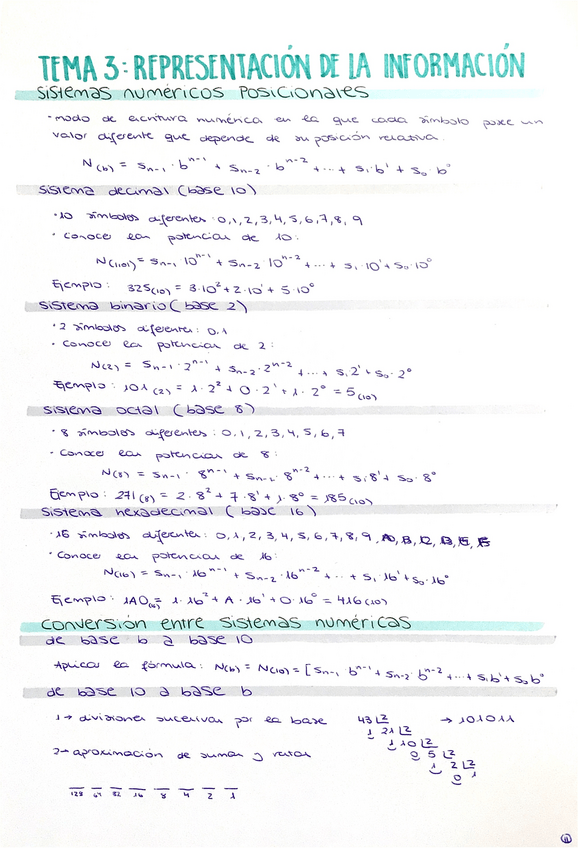 TEMA 3: REPRESENTACIÓN DE LA INFORMACIÓN
Sistemas numéricos posicionales
· modo de escritura numérica en la que cada símbolo posee un
valor diferente que depende de su posición relativa.
N(b) = Sn-1 · b^n-1 + Sn-2 · b^n-2 + ... + S1 · b^1 + S0 · b^0
sistema decimal (base 10)
· 10 símbolos diferentes: 0,1,2,3,4,5,6,7,8,9
· conocer las potencias de 10:
N(10) = Sn-1 10^n-1 + Sn-2 · 10^n-2 + ... + S1 · 10^1 + S0 · 10^0
Ejemplo: 325(10) = 3·10^2 + 2·10^1 + 5·10^0
sistema binario (base 2)
· 2 símbolos diferentes: 0,1
· conocer las potencias de 2:
N(2) = Sn-1 · 2^n-1 + Sn-2 · 2^n-2 + ... + S1 2^1 + S0 · 2^0
Ejemplo: 101(2) = 1·2^2 + 0·2^1 + 1·2^0 = 5(10)
sistema octal (base 8)
· 8 símbolos diferentes: 0,1,2,3,4,5,6,7
· conocer las potencias de 8:
N(8) = Sn-1 · 8^n-1 + Sn-2 · 8^n-2 + ... + S1 8^1 + S0 · 8^0
Ejemplo: 271(8) = 2·8^2 + 7·8^1 + 1·8^0 = 185(10)
sistema hexadecimal (base 16)
· 16 símbolos diferentes: 0,1,2,3,4,5,6,7,8,9,
· conocer las potencias de 16:
N(16) = Sn-1 · 16^n-1 + Sn-2 · 16^n-2 + ... + S1 · 16^1 + S0 · 16^0
Ejemplo: 1A0(16) = 1·16^2 + A·16^1 + 0·16^0 = 416(10)
conversión entre sistemas numéricas
de base b a base 10
Aplicar la fórmula: N(b) = N(10) = [Sn-1 · b^n-1 + Sn-2 · b^n-2 + ... + S1 b^1 + S0 b^0
de base 10 a base b
1→ divisiones sucesivas por la base 43 |2 → 101011
1 21 |2
1 10 |2
0 5 |2
1 2 |2
0 1
2→ aproximación de sumas y restas
128 64 32 16 8 4 2 1